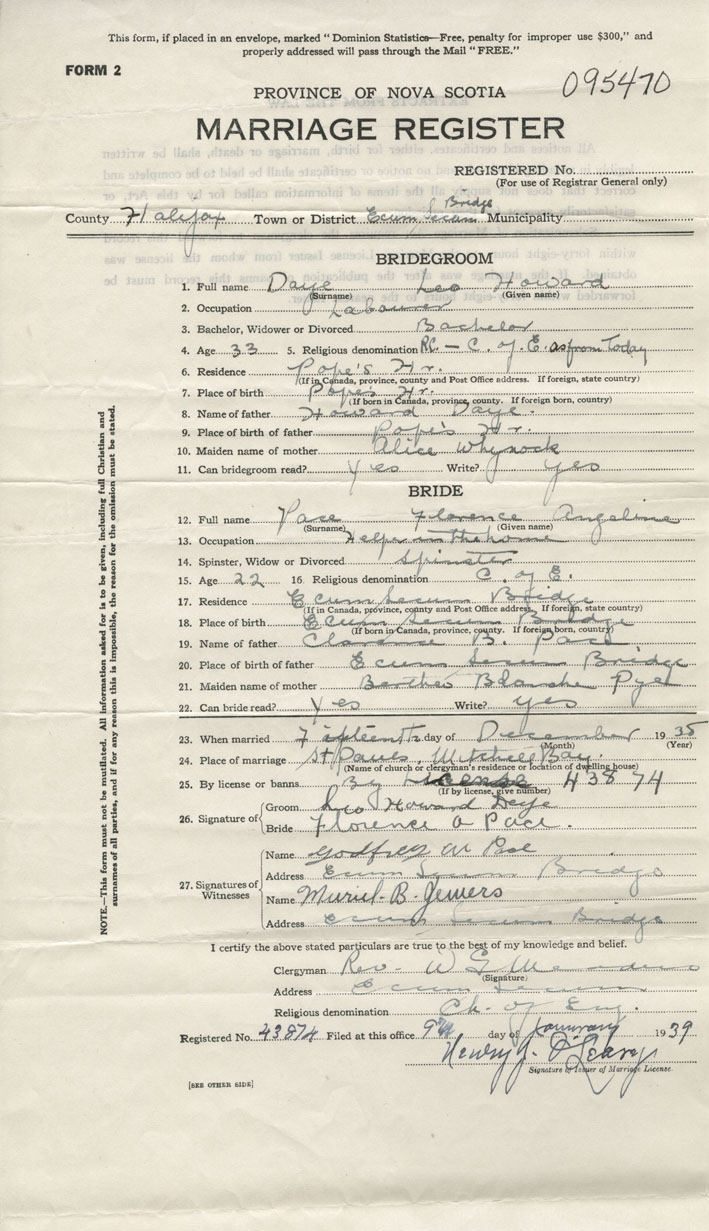 This form, if placed in an envelope, marked "Dominion Statistics—Free, penalty for improper use $300," and
properly addressed will pass through the Mail "FREE."
FORM 2
095470
PROVINCE OF NOVA SCOTIA
MARRIAGE REGISTER
REGISTERED No.
(For use of Registrar General only)
Bridge
County Halifax Town or District Ecum Secum Municipality
BRIDEGROOM
1. Full name Daye Leo Howard
(Surname) (Given name)
2. Occupation Labourer
3. Bachelor, Widower or Divorced Bachelor
4. Age 33 5. Religious denomination R.C. — C. of E. as from Today
6. Residence Pope's Hr.
(If in Canada, province, county and Post Office address. If foreign, state country)
7. Place of birth Pope's Hr.
(If born in Canada, province, county. If foreign born, country)
8. Name of father Howard Daye.
9. Place of birth of father Pope's Hr.
10. Maiden name of mother Alice Whynock
11. Can bridegroom read? Yes Write? yes
BRIDE
12. Full name Pace Florence Angeline
(Surname) (Given name)
13. Occupation Helps in the home
14. Spinster, Widow or Divorced Spinster
15. Age 22 16. Religious denomination C. of E.
17. Residence Ecum Secum Bridge
(If in Canada, province, county and Post Office address. If foreign, state country)
18. Place of birth Ecum Secum Bridge
(If born in Canada, province, county. If foreign born, country)
19. Name of father Clarence B. Pace
20. Place of birth of father Ecum Secum Bridge
21. Maiden name of mother Bertha Blanche Pye
22. Can bride read? Yes Write? yes
23. When married Fifteenth day of December 19
(Month) (Year)
24. Place of marriage St Paul's, Mitchell Bay.
(Name of church or clergyman's residence or location of dwelling house)
25. By license or banns By License 43874
(If by license, give number)
26. Signature of Groom Leo Howard Daye
Bride Florence A Pace.
27. Signatures of Witnesses
Name Godfrey
Address Ecum Secum Bridge
Name Muriel B. Jewers
Address Ecum Secum Bridge
I certify the above stated particulars are true to the best of my knowledge and belief.
Clergyman Rev. W
(Signature)
Address Ecum Secum
Religious denomination Ch. of Eng.
Registered No. 43874 Filed at this office 9th day of January 1939
Henry J. O'Leary
Signature of Issuer of Marriage License.
[SEE OTHER SIDE]
NOTE.—This form must not be mutilated. All information asked for is to be given, including full Christian and
surnames of all parties, and if for any reason this is impossible, the reason for the omission must be stated.